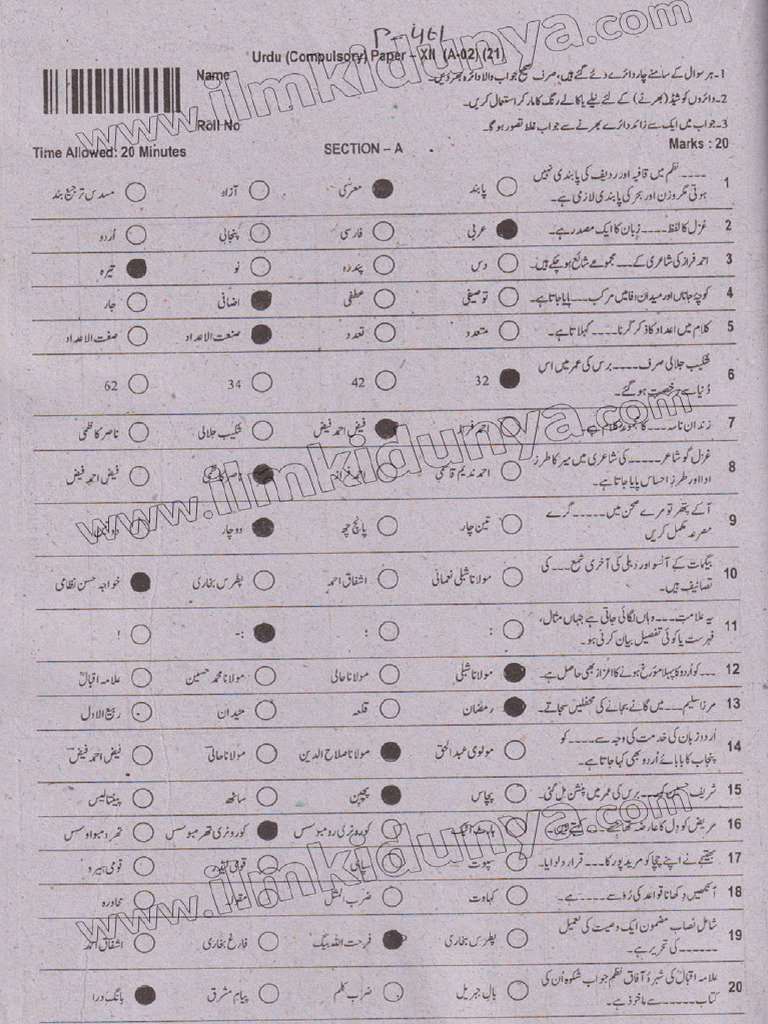 P-461
Urdu (Compulsory) Paper – XII (A-02) (21)
Name
1- ہر سوال کے سامنے چار دائرے دئے گئے ہیں، صرف صحیح جواب والا دائرہ بھر دیں۔
2- دائروں کو شیڈ (بھرنے) کے لئے نیلے یا کالے رنگ کا مارکر استعمال کریں۔
Roll No
3- جواب میں ایک سے زائد دائرے بھرنے سے جواب غلط تصور ہوگا۔
Time Allowed: 20 Minutes SECTION – A Marks : 20
1 ۔۔۔۔ نظم میں قافیہ اور ردیف کی پابندی نہیں
ہوتی مگر وزن اور بحر کی پابندی لازمی ہے۔ پابند معرّٰی آزاد مسدس ترجیع بند
2 غزل کا لفظ ۔۔۔۔ زبان کا ایک مصدر ہے۔ عربی فارسی پنجابی اُردو
3 احمد فراز کی شاعری کے ۔۔۔ مجموعے شائع ہو چکے ہیں۔ دس پندرہ نو تیرہ
4 کوچۂ جاناں اور میدانِ وفا میں مرکب ۔۔۔ پایا جاتا ہے۔ توصیفی عطفی اضافی جار
5 کلام میں اعداد کا ذکر کرنا ۔۔۔۔ کہلاتا ہے۔ متعدد تعدد صنعت الاعداد صفت الاعداد
6 شکیب جلالی صرف ۔۔۔۔ برس کی عمر میں اس
دُنیا سے رخصت ہو گئے۔ 32 42 34 62
7 زندان نامہ ۔۔۔ کا مجموعہ کلام ہے۔ احمد فراز فیض احمد فیض شکیب جلالی ناصر کاظمی
8 غزل گو شاعر ۔۔۔۔ کی شاعری میں میر کا طرزِ
ادا اور طرزِ احساس پایا جاتا ہے۔ احمد ندیم قاسمی احمد فراز ناصر کاظمی فیض احمد فیض
9 آ کے پتھر تو مرے صحن میں ۔۔۔۔۔ گرے
مصرعہ مکمل کریں تین چار پانچ چھ دو چار
10 بیگمات کے آنسو اور دہلی کی آخری شمع ۔۔۔ کی
تصانیف ہیں۔ مولانا شبلی نعمانی اشفاق احمد پطرس بخاری خواجہ حسن نظامی
11 یہ علامت ۔۔۔ وہاں لگائی جاتی ہے جہاں مثال،
فہرست یا کوئی تفصیل بیان کرنی ہو۔ : ؛ :- !
12 ۔۔۔ کو اُردو کا پہلا مؤرخ ہونے کا اعزاز بھی حاصل ہے۔ مولانا شبلی مولانا حالی مولانا محمد حسین علامہ اقبالؒ
13 مرزا سلیم ۔۔۔ میں گانے بجانے کی محفلیں سجاتے۔ رمضان قلعہ میدان ربیع الاول
14 اُردو زبان کی خدمت کی وجہ سے ۔۔۔۔ کو
پنجاب کا بابائے اُردو بھی کہا جاتا ہے۔ مولوی عبدالحق مولانا صلاح الدین مولانا حالی فیض احمد فیض
15 شریف حسین کو ۔۔۔ برس کی عمر میں پنشن مل گئی۔ پچاس پچپن ساٹھ پینتالیس
16 مریض کو دل کا عارضہ تھا جسے ۔۔۔ کہتے ہیں۔ ہارٹ اٹیک کورونری رومبوسس کورونری تھرمبوسس تھرومبو اوسس
17 بھتیجے نے اپنے چچا کو مرید پور کا ۔۔۔ قرار دلوایا۔ سپوت قومی لیڈر قومی ہیرو
18 آنکھیں دکھانا قواعد کی رُو سے ۔۔۔۔ ہے۔ کہاوت ضرب المثل مقولہ محاورہ
19 شاملِ نصاب مضمون ایک وصیت کی تعمیل
۔۔۔۔۔۔ کی تحریر ہے۔ پطرس بخاری فرحت اللہ بیگ فارغ بخاری اشفاق احمد
20 علامہ اقبالؒ کی شہرۂ آفاق نظم جوابِ شکوہ اُن کی
کتاب ۔۔۔۔۔۔ سے ماخوذ ہے۔ بالِ جبریل ضربِ کلیم پیامِ مشرق بانگِ درا
www.ilmkidunya.com
www.ilmkidunya.com
www.ilmkidunya.com